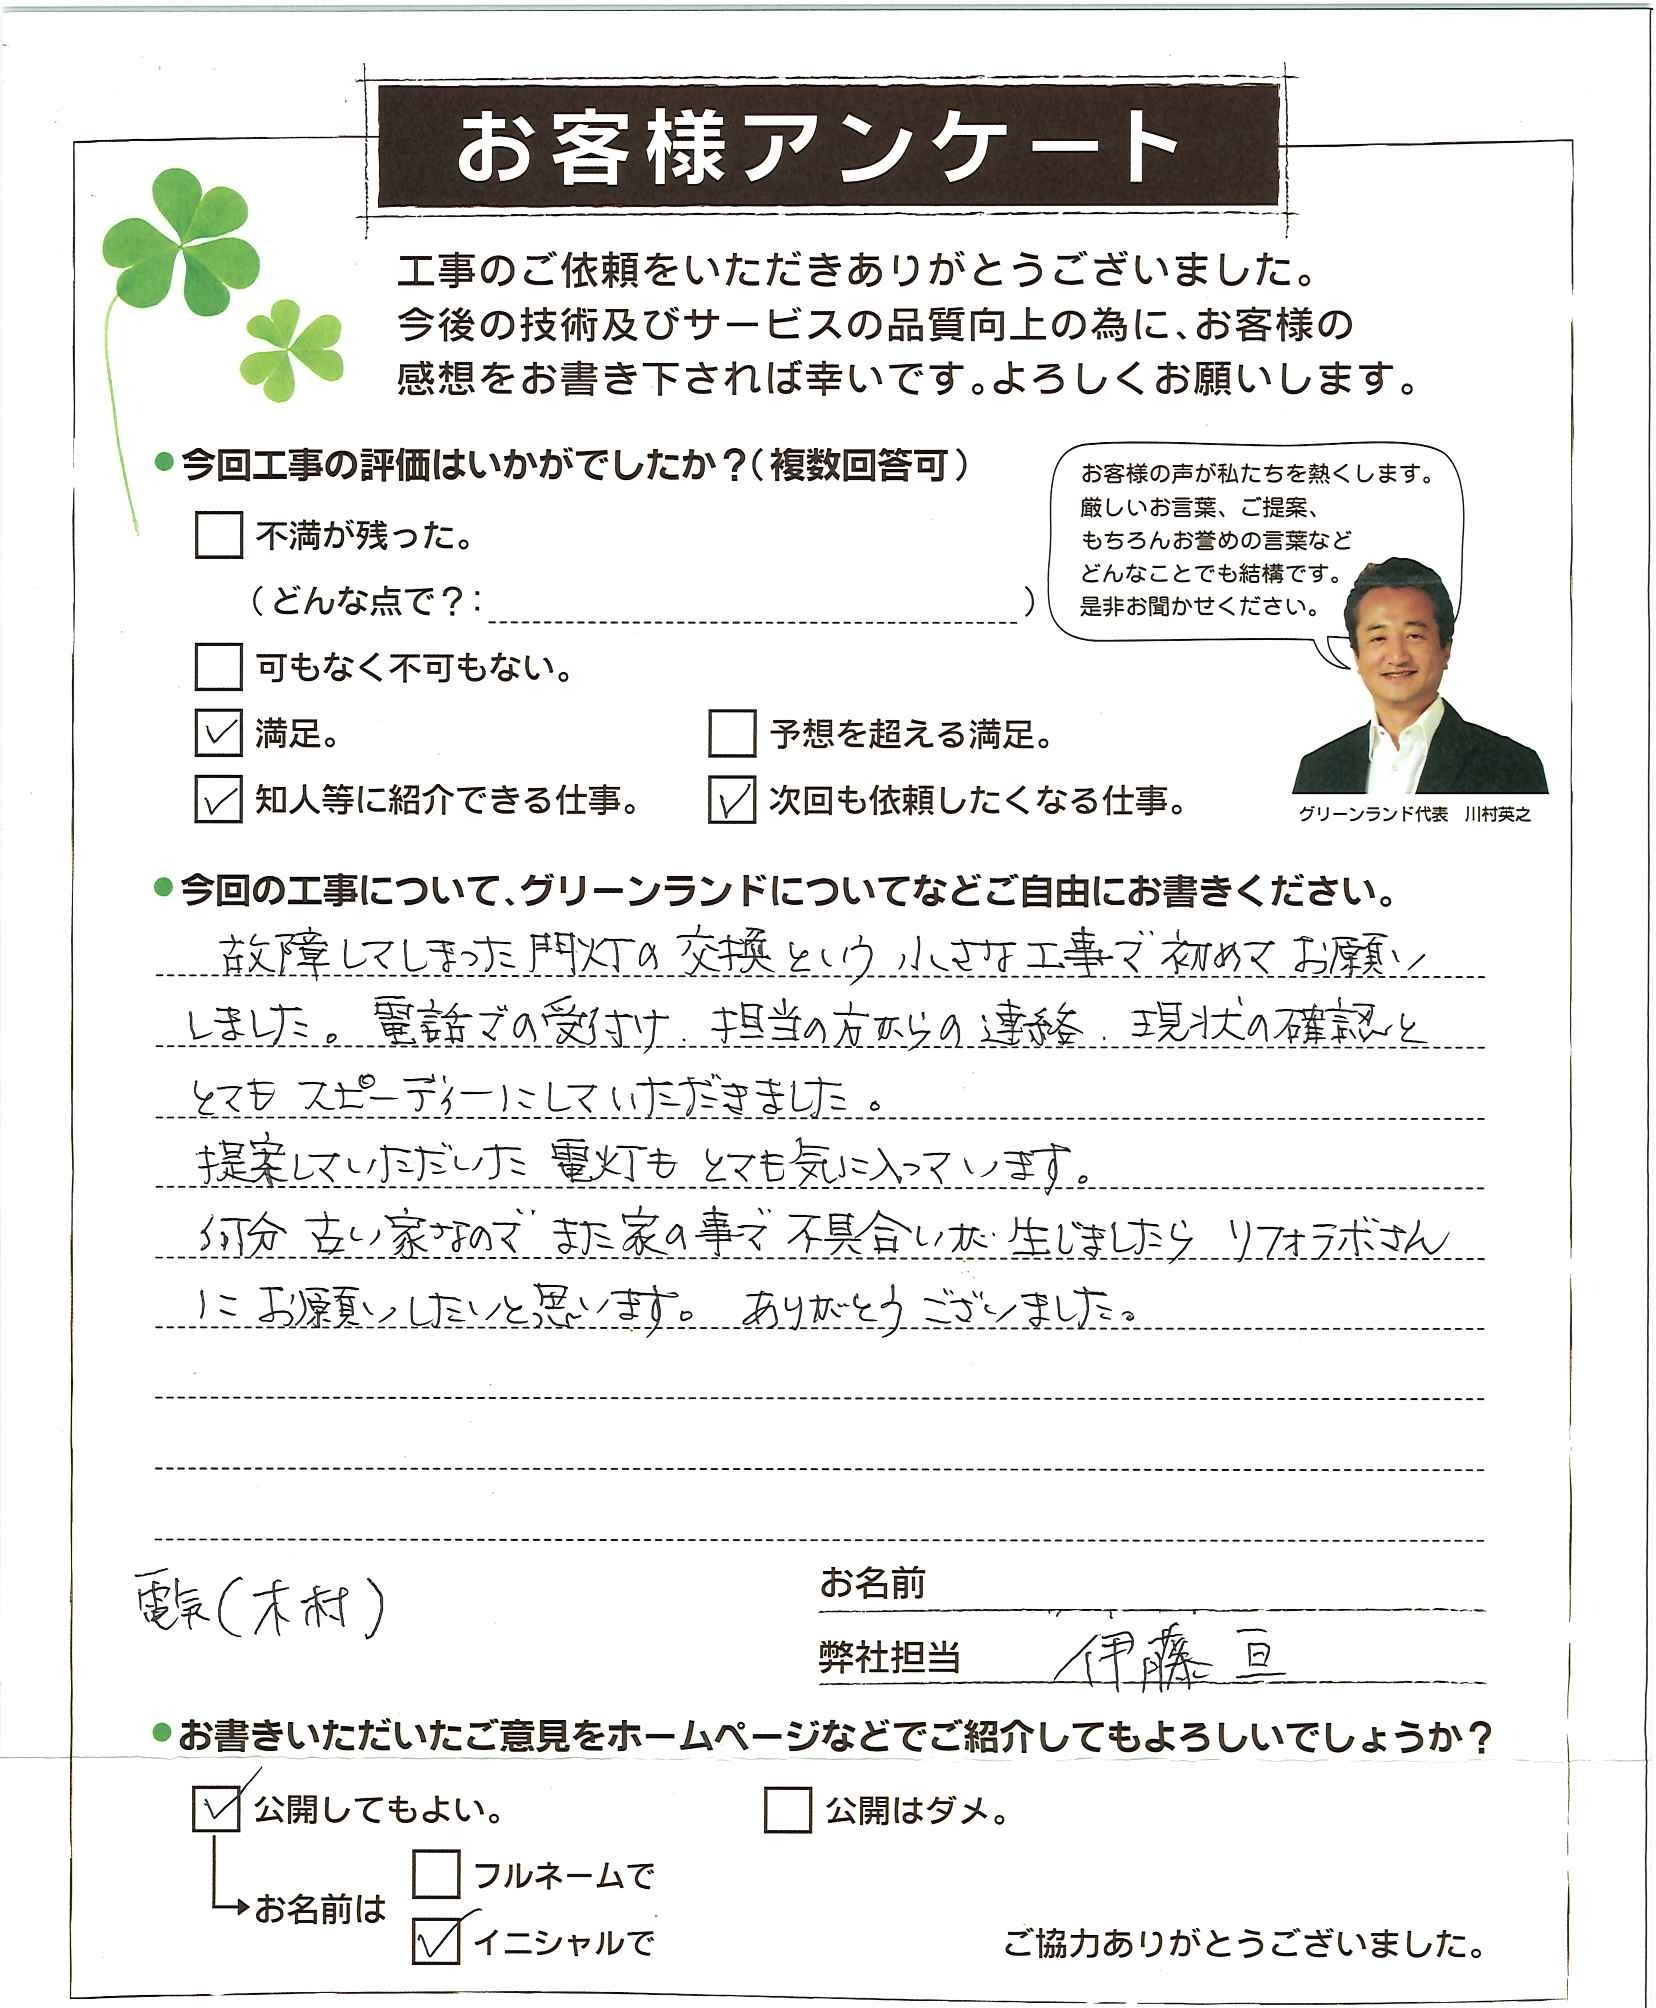 お客様アンケート
工事のご依頼をいただきありがとうございました。
今後の技術及びサービスの品質向上の為に、お客様の
感想をお書き下されば幸いです。よろしくお願いします。
●今回工事の評価はいかがでしたか？(複数回答可)
お客様の声が私たちを熱くします。
厳しいお言葉、ご提案、
もちろんお誉めの言葉など
どんなことでも結構です。
是非お聞かせください。
グリーンランド代表 川村英之
不満が残った。
(どんな点で？: )
可もなく不可もない。
満足。 予想を超える満足。
知人等に紹介できる仕事。 次回も依頼したくなる仕事。
●今回の工事について、グリーンランドについてなどご自由にお書きください。
故障してしまった門灯の交換という小さな工事で初めてお願い
しました。電話での受付け、担当の方からの連絡、現状の確認と
とてもスピーディーにしていただきました。
提案していただいた電灯もとても気に入っています。
何分古い家なのでまた家の事で不具合いが生じましたらリフォラボさん
にお願いしたいと思います。ありがとうございました。
電気(木村)
お名前
弊社担当 伊藤亘
●お書きいただいたご意見をホームページなどでご紹介してもよろしいでしょうか？
公開してもよい。 公開はダメ。
お名前は フルネームで
イニシャルで
ご協力ありがとうございました。